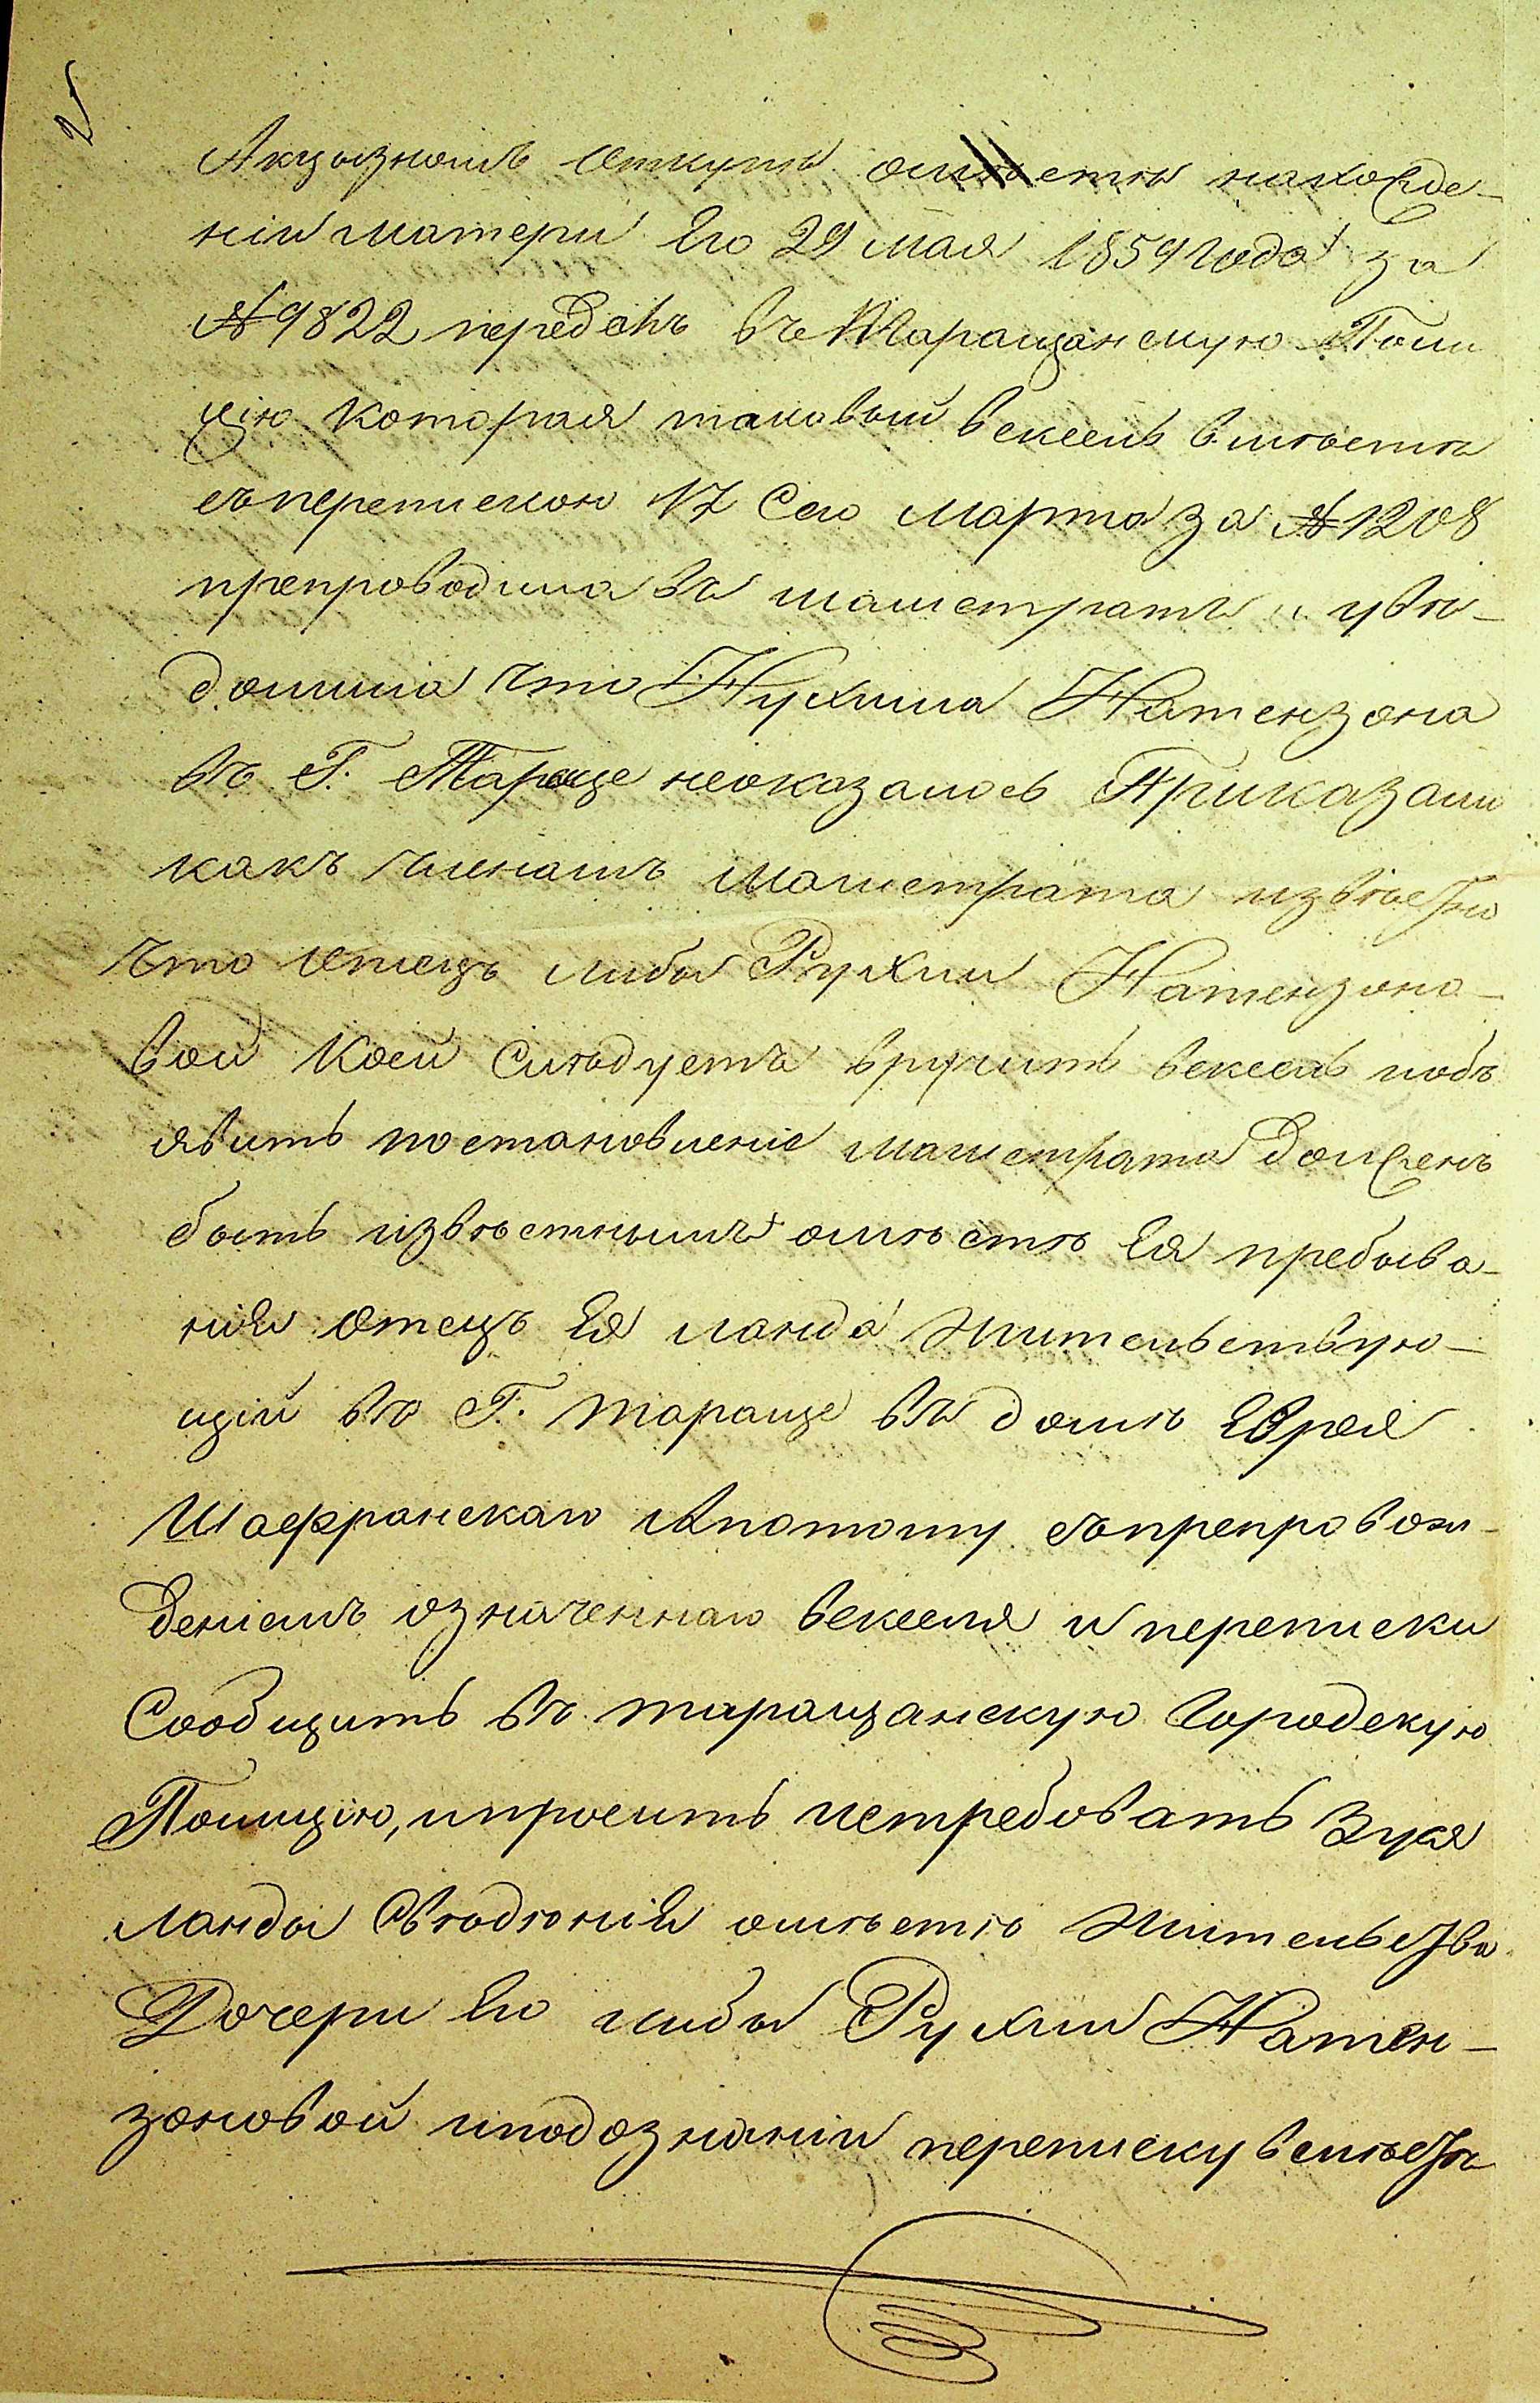 Акцызномъ Откупѣ омѣстѣ нахожде-
ніи матери Его 29 мая 1859 года за
№ 9822 передалъ въ Таращанскую Поли
цію которая таковый вексель вмѣстѣ
съперепискою 17 Сего Марта за № 1208
препроводила въ магистратъ и увѣ-
домила что Нухима Натензона
въ Г. Тараще неоказалось Приказали
какъ членамъ магистрата извѣстно
что Отецъ либы Рухли Натензоно-
вой Коей Слѣдуетъ вручить вексель иобъ
явить постановленіе магистрата долженъ
быть извѣстнымъ омѣстѣ Ея пребыва-
нія Отецъ Ея ланда жительствую-
щій въ Г. тараще въ домѣ Еврея
Шафранскаго Апотому съпрепровож-
деніемъ означеннаго векселя и переписки
Сообщить въ таращанскую Городскую
Полицію, ипросить истребовать Зуся
ланды Свѣдѣнія омѣстѣ жительства
Дочери Его либы Рухли Натен-
зоновой иподознаніи переписку вмѣстѣ